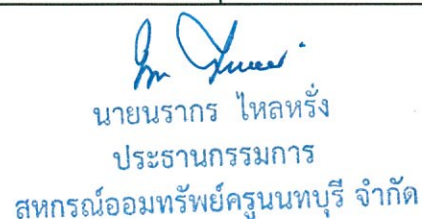 นายนรากร ไหลหรั่ง
ประธานกรรมการ
สหกรณ์ออมทรัพย์ครูนนทบุรี จำกัด